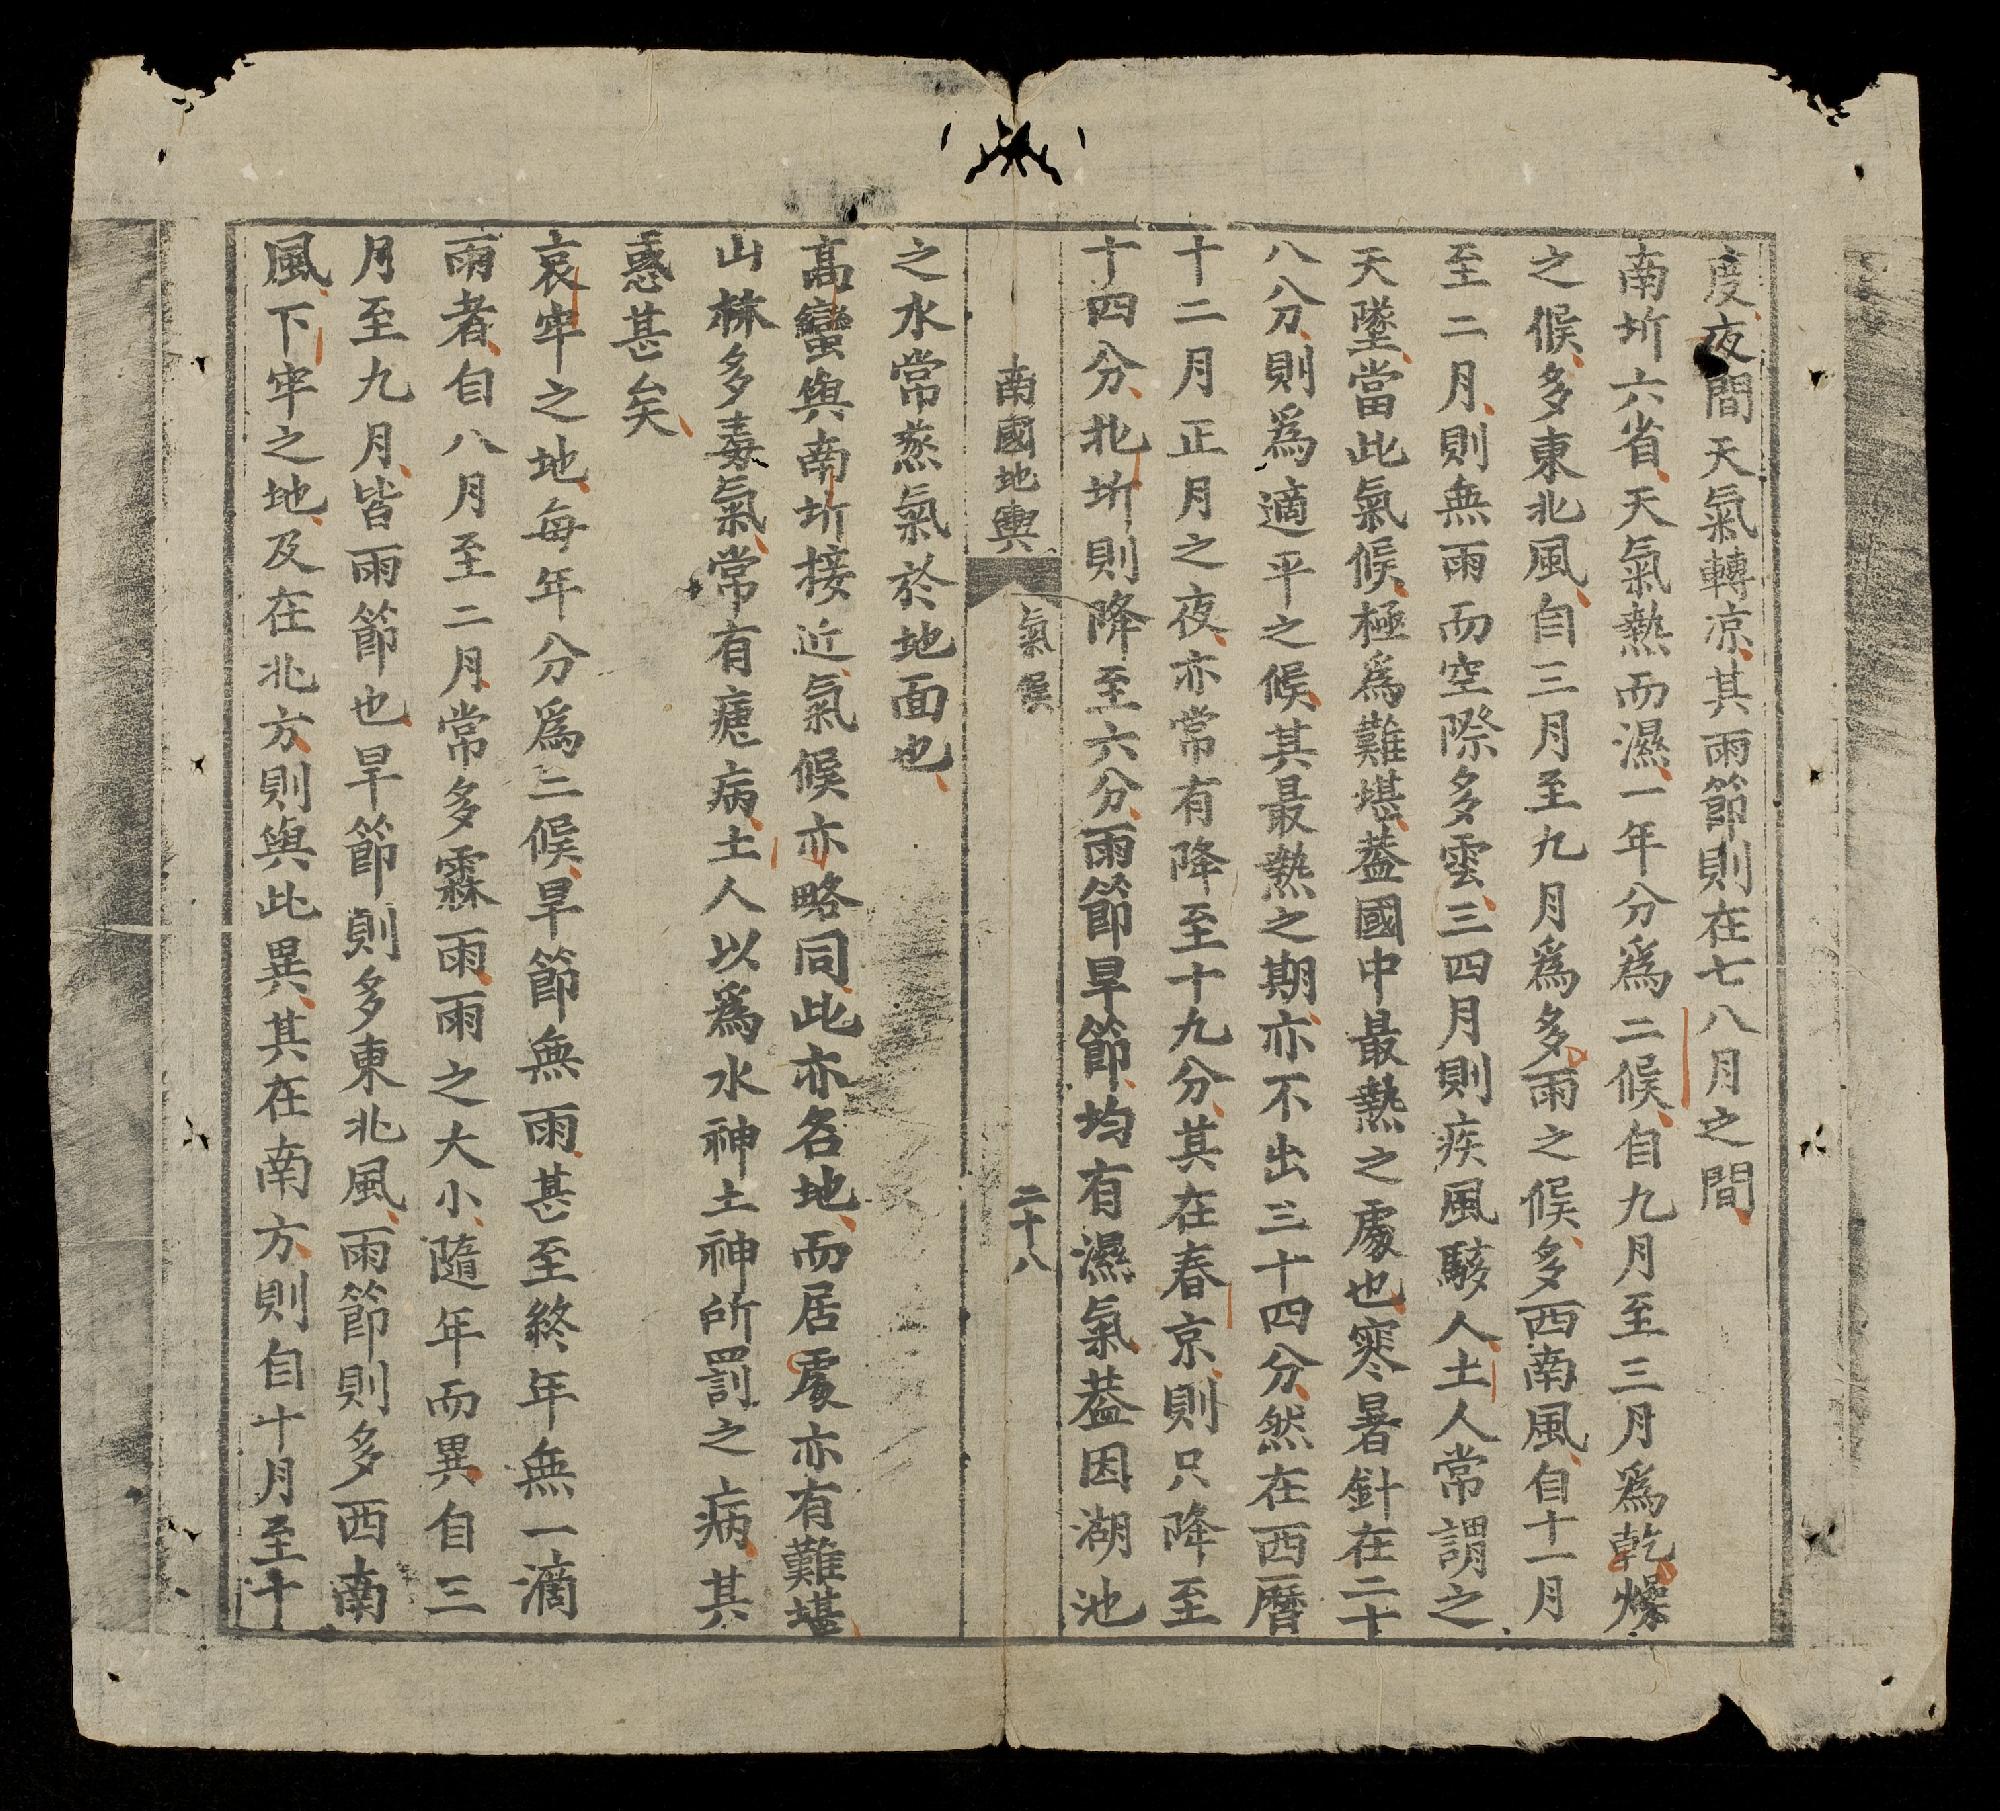 度夜間天氣轉凉其雨節則在七八月之間
南圻六省天氣熱而濕一年分爲二候自九月至三月爲乾燥
之候多東北風自三月至九月爲多雨之候多西南風自十一月
至二月則無雨而空際多雲三四月則疾風駭人土人常謂之
天墜當此氣候極爲難堪蓋國中最熱之處也寒暑針在二十
八分則爲適平之候其最熱之期亦不出三十四分然在西曆
十二月正月之夜亦常有降至十九分其在春京則只降至
十四分北圻則降至六分雨節旱節均有濕氣葢因湖池
南國地輿 氣候 二十八
之水常蒸氣於地面也
高蠻與南圻接近氣候亦略同此亦名地而居處亦有難堪
山林多毒氣常有瘧病土人以爲水神土神所罰之病其
惑甚矣
哀牢之地每年分爲二候旱節無雨甚至終年無一滴
雨者自八月至二月常多霖雨雨之大小隨年而異自三
月至九月皆雨節也旱節則多東北風雨節則多西南
風下牢之地及在北方則與此異其在南方則自十月至十